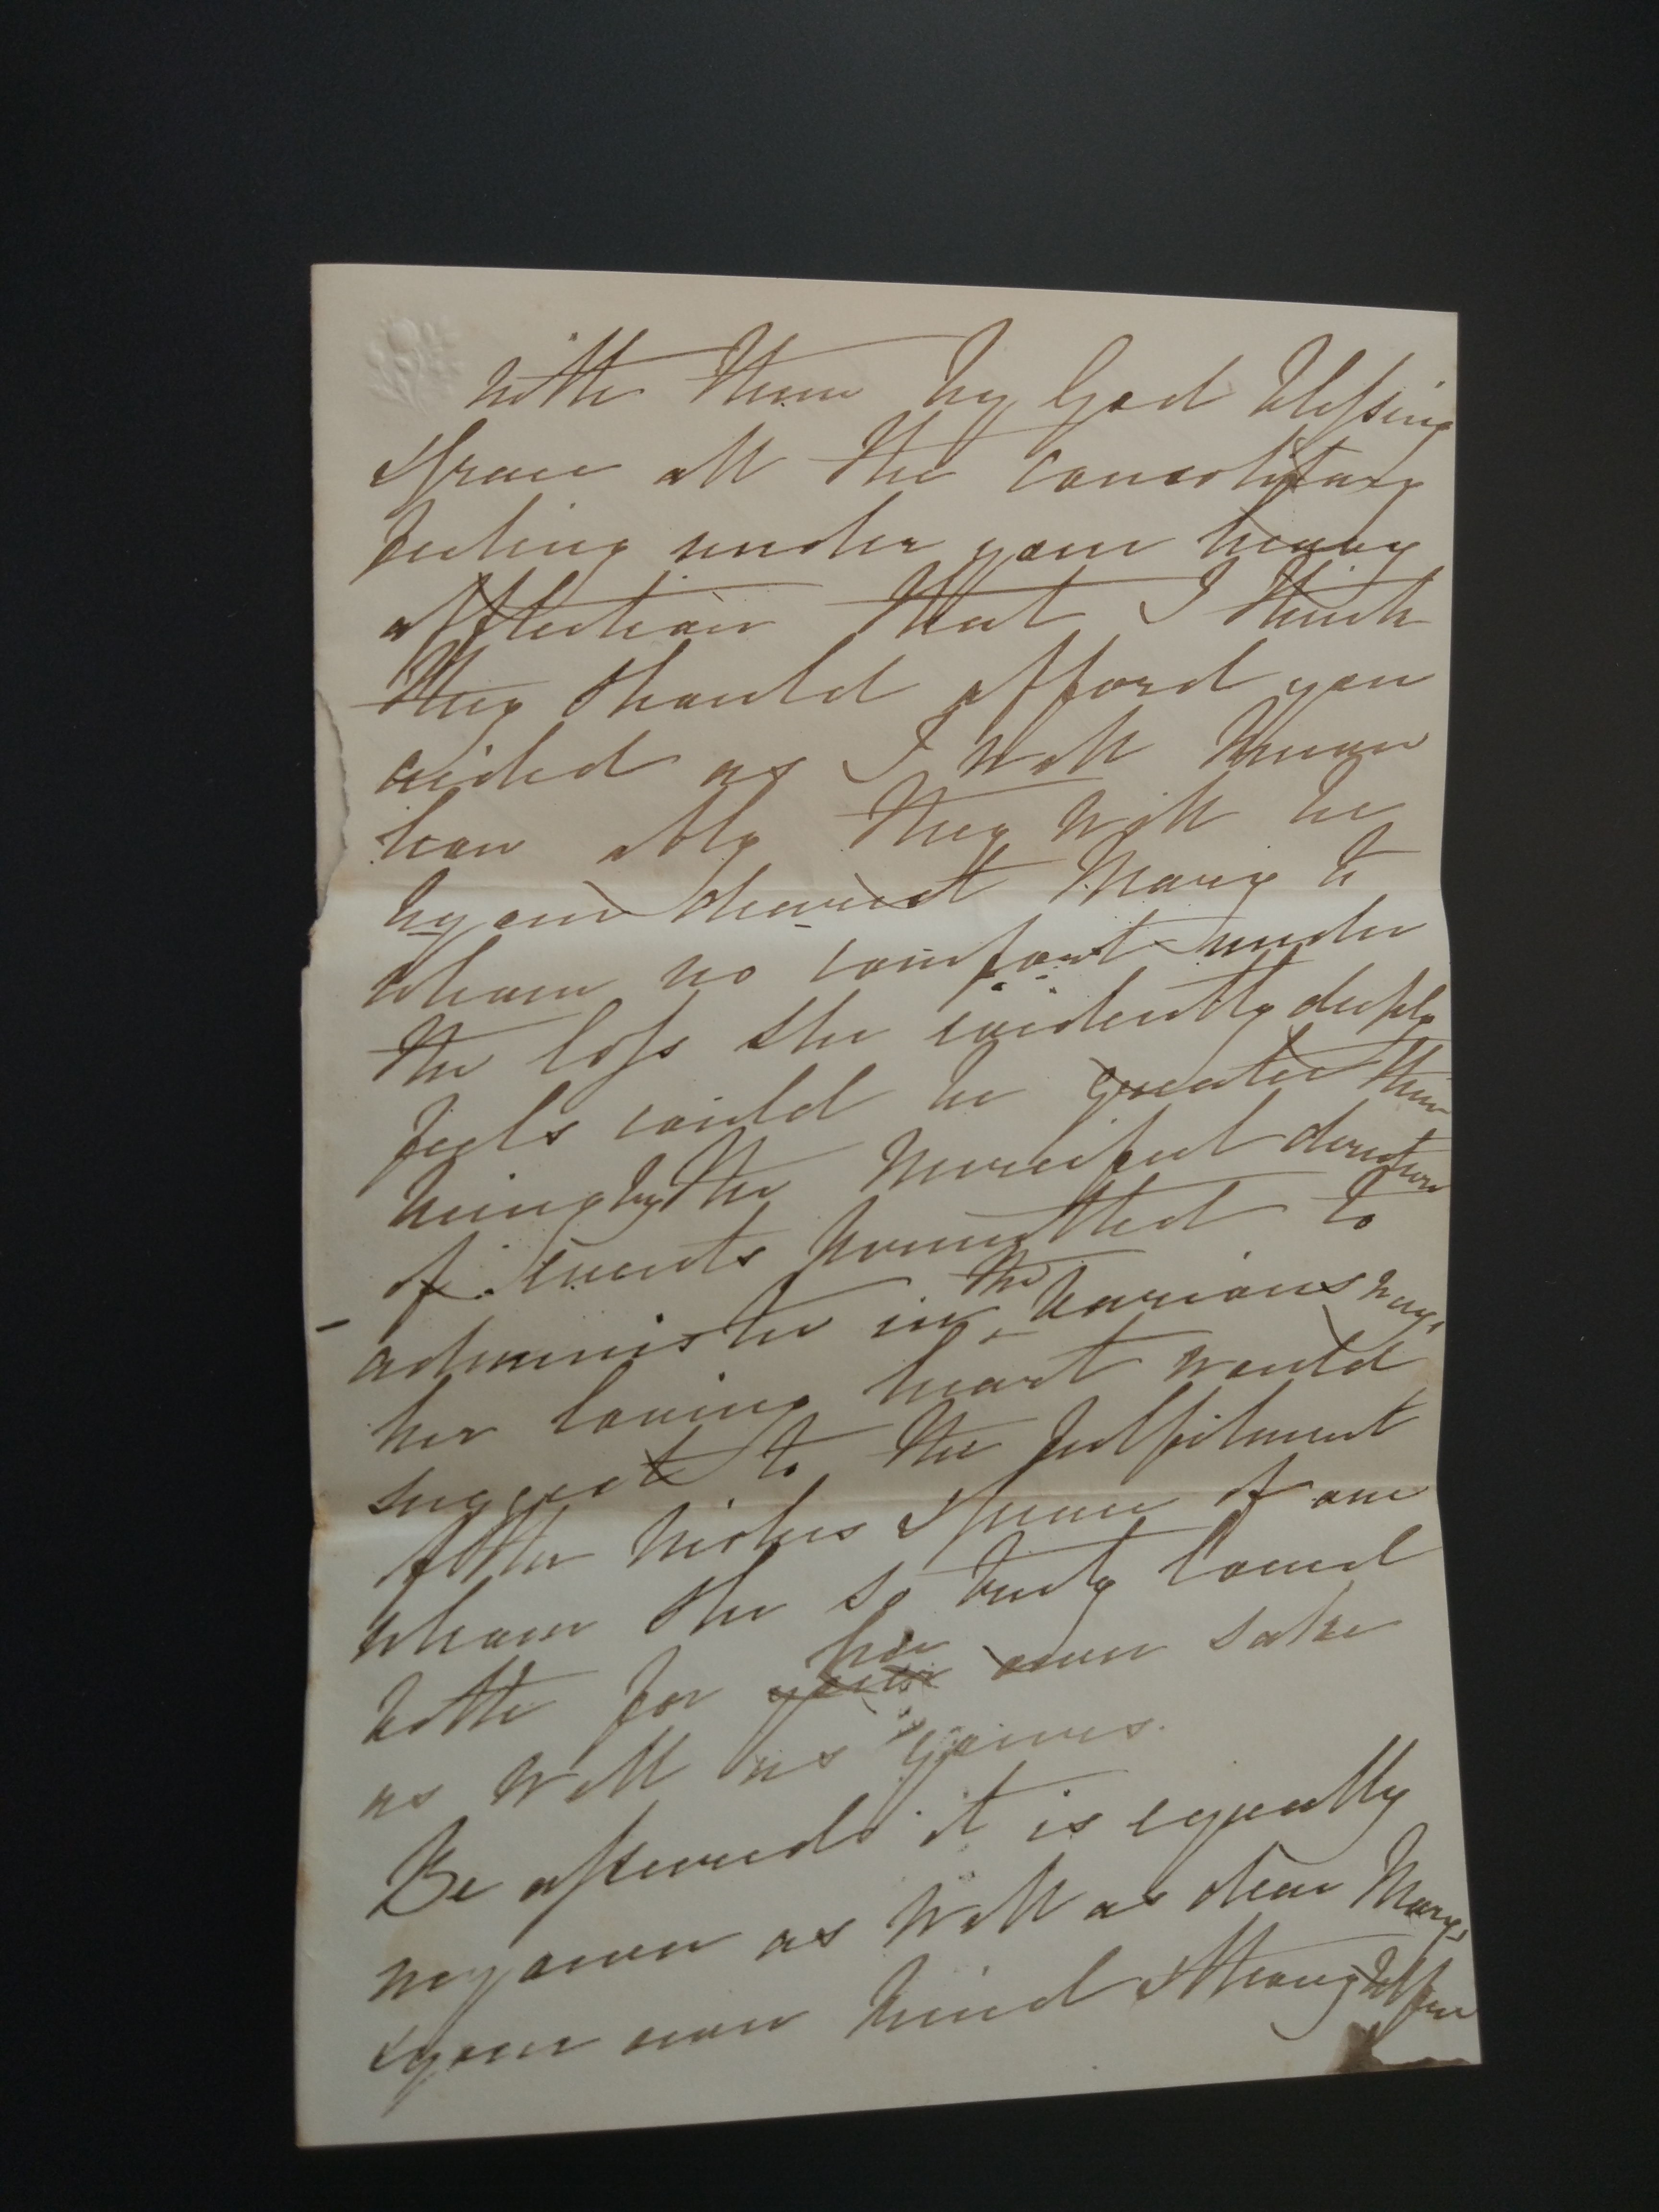 with them by God blessing
& grace all the consolitary
feeling under your heavy
affliction that I think
they should afford you
aided as I well know
how ably they will be
by our dearest Mary to
whom no comfort under
the loss she evidently deeply
feels could be greater than
being by the merciful direction
of events permitted to
administer in the various ways
her loving heart would
suggest to the fulfilment
of the wishes & peace of one
whom she so truly loved
both for your her own sake
as well as yours.
Be assured it is equally
my own as well as dear Mary's
& your own kind & thoughtful